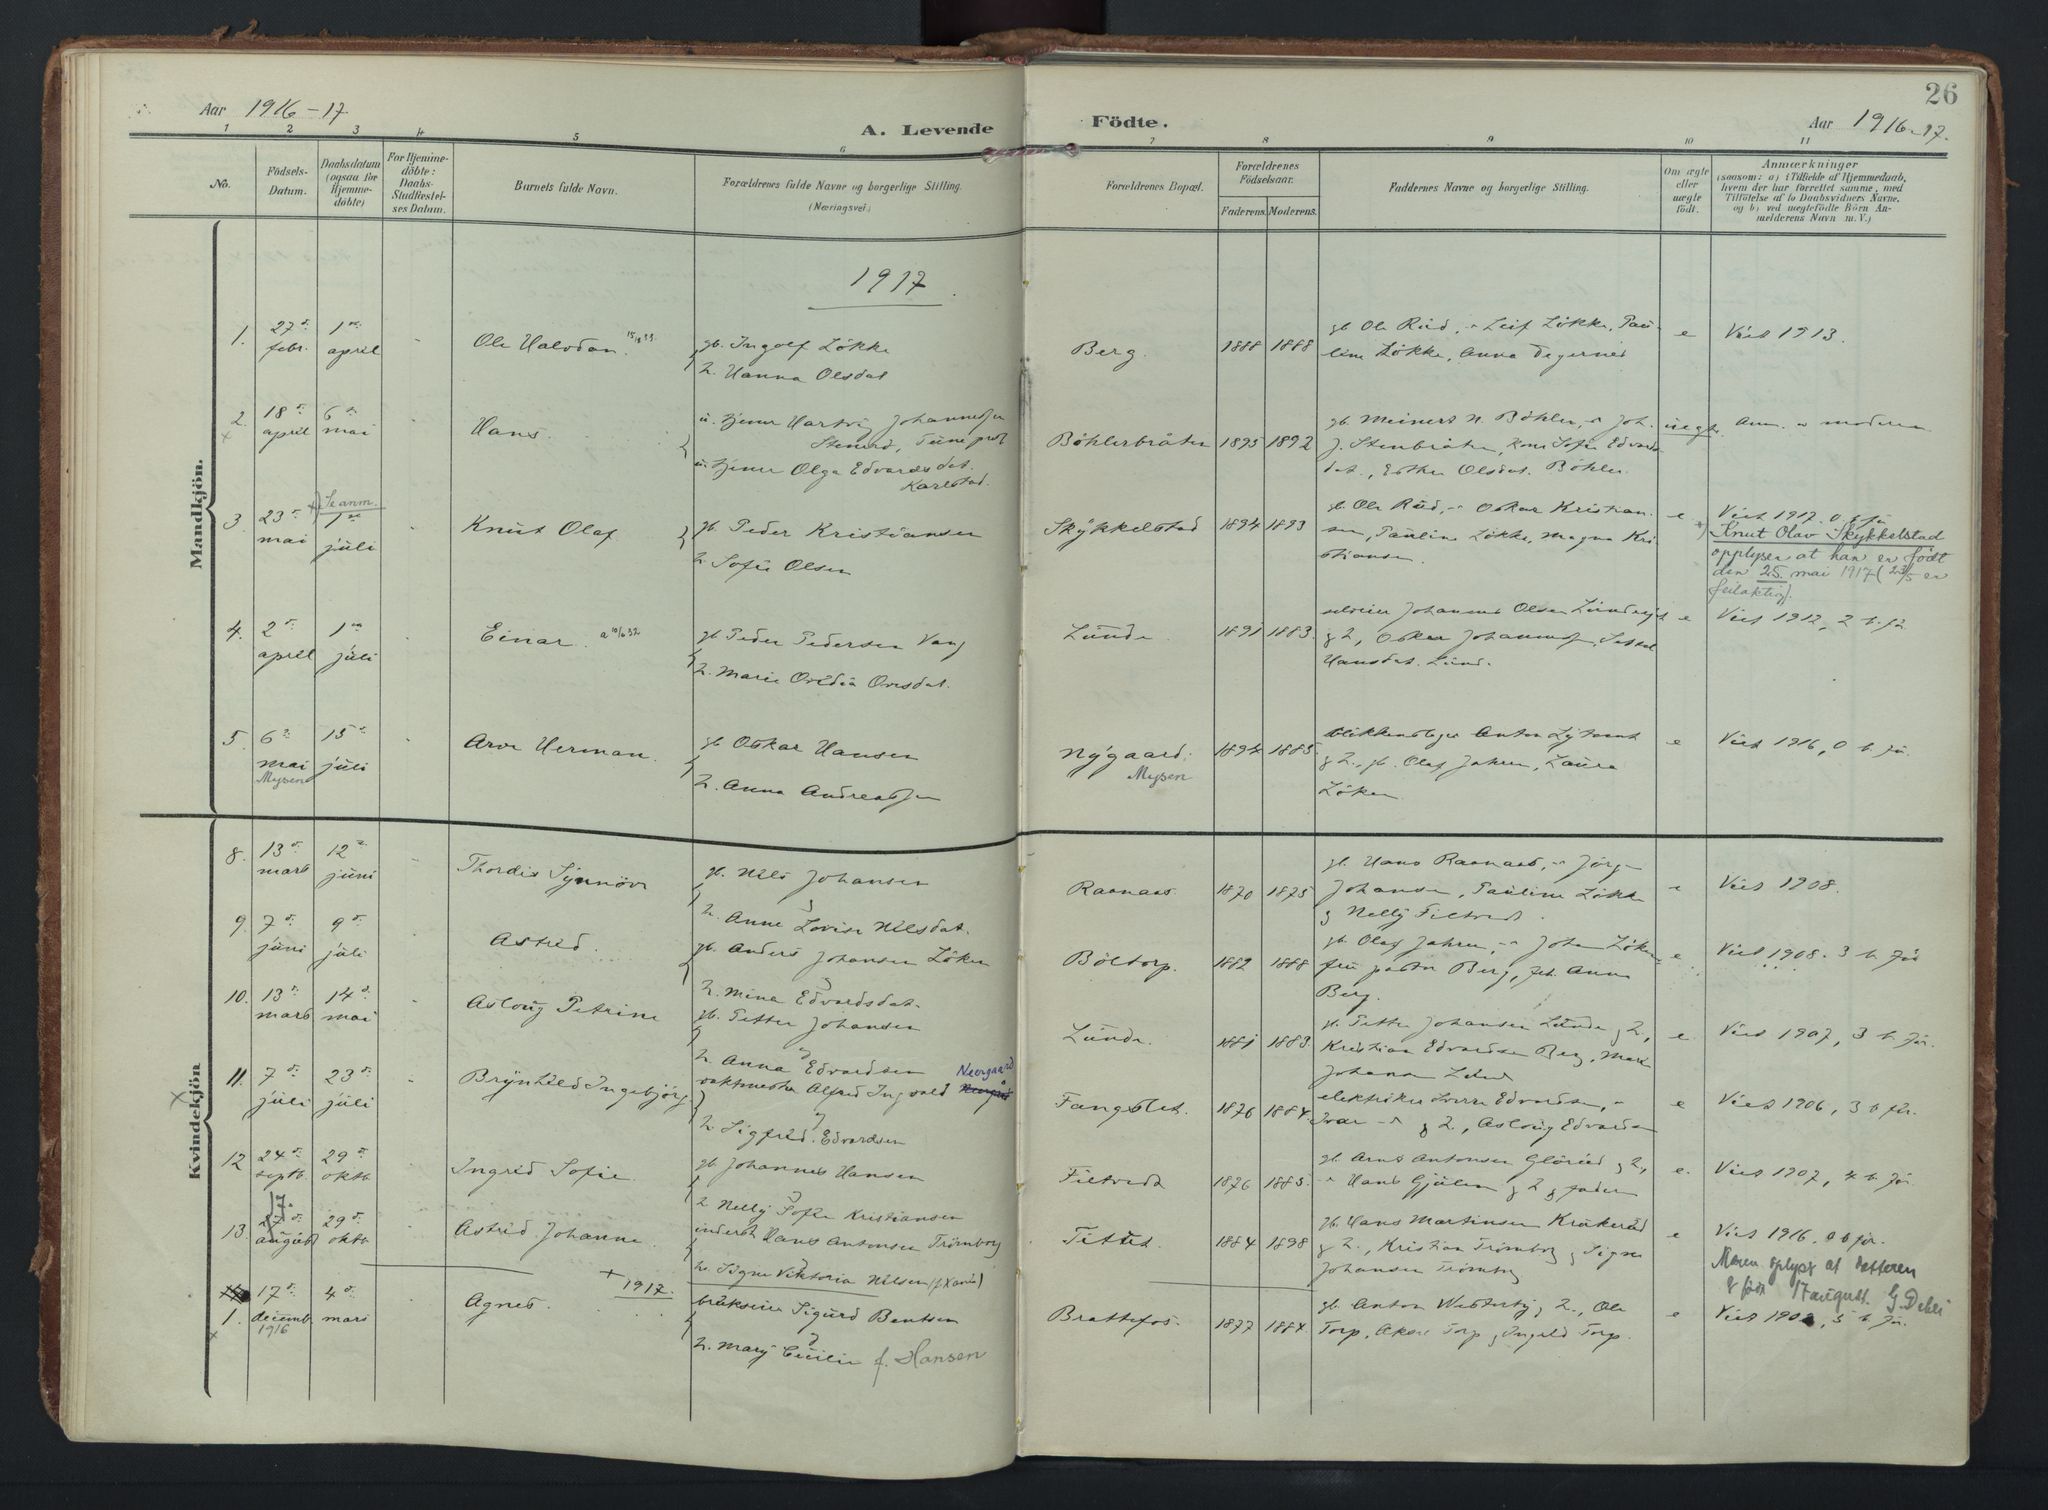 26
Aar 1916-17
A. Levende Födte.
Aar 1916-17.
1 2 3 4 5 6 7 8 9 10 11
No.
Födsels-
Datum.
Daabsdatum
(ogsaa for
Hjemme-
döbte)
For Hjemme-
döbte:
Daabs-
Stadfæstel-
ses Datum.
Barnets fulde Navn.
Forældrenes fulde Navne og borgerlige Stilling.
(Næringsvei)
Forældrenes Bopæl.
Forældrenes
Födselsaar.
Faderens. Moderens.
Faddernes Navne og borgerlige Stilling.
Om ægte
eller
uægte
födt.
Anmærkninger
(saasom: a) i Tilfælde af Hjemmedaab,
hvem der har forrettet samme, med
Tilföielse af to Daabsvidners Navne.
og b) ved uægtefödte Börn An-
melderens Navn m. V.)
Mandkjön.
1917.
1. 27 febr. 1 april Ole Halvdan gb. Ingolf Lökke
h. Hanna Olsdat
Berg. 1888 1888 gb. Ole Rüd, Leif Lökke, Pau-
line Lökke, Anna Degernes e Viet 1913.
2. 18 april 6 mai Hans. u. Hartvig Johannesen
u. Olga Edvardsdat.
Karlstad.
Böhlerbråten 1895 1892 gb. Meinert N. Böhler, Joh.
J. Stenbråten, Kone Sofie Edvards
dat., Esther Olsdat. Böhler. uegte Anm. moderen
3. 23 mai Se anm. 1 jüli Knüt Olaf gb. Peder Kristiansen
h. Sofie Olsen
Skÿkkelstad 1894 1893 gb. Ole Rüd, Oskar Kristian
sen, Paüline Lökke, Magna Kri
stiansen e Viet 1917. 0 b. för
Knut Olav Skykkelstad
opplyser at han er født
den 25. mai 1917 (23/5 er
feilaktig).
4. 2 april 1 jüli Einar. a 10/6 32 gb. Peder Pedersen Vang
h. Marie Ovidia Ovesdat.
Lünde. 1891 1883. selveier Johannes Olsen
g h., Oskar Johannes
Hansdat. Lund. e Viet 1912, 2 b. för
5. 6 mai Mysen 15 jüli Arve Herman. gb. Oskar Hansen
h. Anna Andreassen
Nÿgaard. Mysen 1894 1885. blikkenslager Anton
g h., gb. Olaf Jahren, Laüra
Löken. e Viet 1916, 0 b. för
Kvindekjön
8. 13 mars 12 jüni Thordis Sÿnnöve gb. Nils Johansen
h. Anne Lovise Nilsdat.
Raanaas 1870 1875 gb. Hans Raanaas, Jörgen
Johansen, Paüline Lökke
g Nellÿ Fieltvedt. e Viet 1908.
9. 7 jüni 9 jüli Astrid. gb. Anders Johansen Löken
h. Mina Edvardsdat.
Böltorp. 1882 1888 gb. Olaf Jahren, Johan Löken,
frü pastor Berg, frk. Anna
Berg. e Viet 1908. 3 b. för
10. 13 mars 14 mai Aslaüg Petrine gb. Petter Johansen
h. Anna Edvardsen
Lünde. 1881 1883. gb. Petter Johansen Lünde g h.,
Kristian Edvardsen Berg,
Johanna e. Viet 1907, 3 b. för.
11. 7 jüli 23 jüli Brÿnhild Ingebjörg vaktmester Alfred Ingvald Neergaard
h. Sigfrid Edvardsen
Fangslet. 1876 1884. elektriker Sverre Edvardsen,
Ivar g h., Aslaüg Edvardsen e Viet 1906, 3 b för.
12 24 septb. 29 oktb Ingrid Sofie gb. Johannes Hansen
h. Nellÿ Sofie Kristiansen
Fieltvedt 1876 1885. gb. Arne Antonsen Glörüd g h.,
Hans Gjülem g h g faderen e. Viet 1907, 4 b. för.
13. 17. 27 august 29 oktb Astrid Johanne inderst Hans Antonsen Trömborg
h. Signe Viktoria Nilsen
Tittüt. 1884 1898 gb. Hans Martinsen Kråkerüd
g h., Kristian Trömborg g Signe
Johansen Trömborg e Viet 1916. 0 b för.
Moren oplyst at datteren
er född 17 august. G. Dehli
1. 17 decemb. 1916 4 mars Agnes. + 1917. brükseier Sigürd Bentsen
h. Marÿ Cecilie f. Hansen
Brattefos. 1877 1884. gb. Anton Westerbÿ g h., Ole
Torp, Aksel Torp g Ingrid Torp. e Viet 190, 5 b. för.